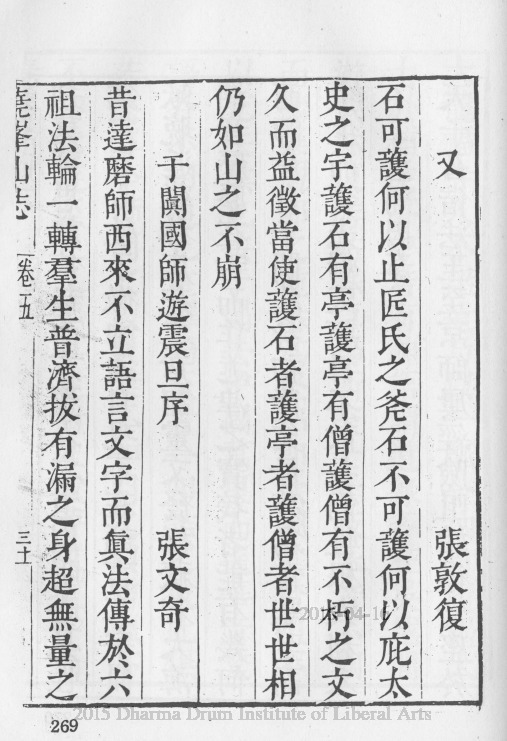 又　張敦復
石可護何以止匠氏之斧石不可護何以庇太
史之宇護石有亭護亭有僧護僧有不朽之文
久而益徵當使護石者護亭者護僧者世世相
仍如山之不崩
于闐國師遊震旦序　張文奇
昔達磨師西來不立語言文字而眞法傳於六
祖法輪一轉羣生普濟拔有漏之身超無量之
峯山志　卷五
269
2015 Dharma Drum Institute of Liberal Arts